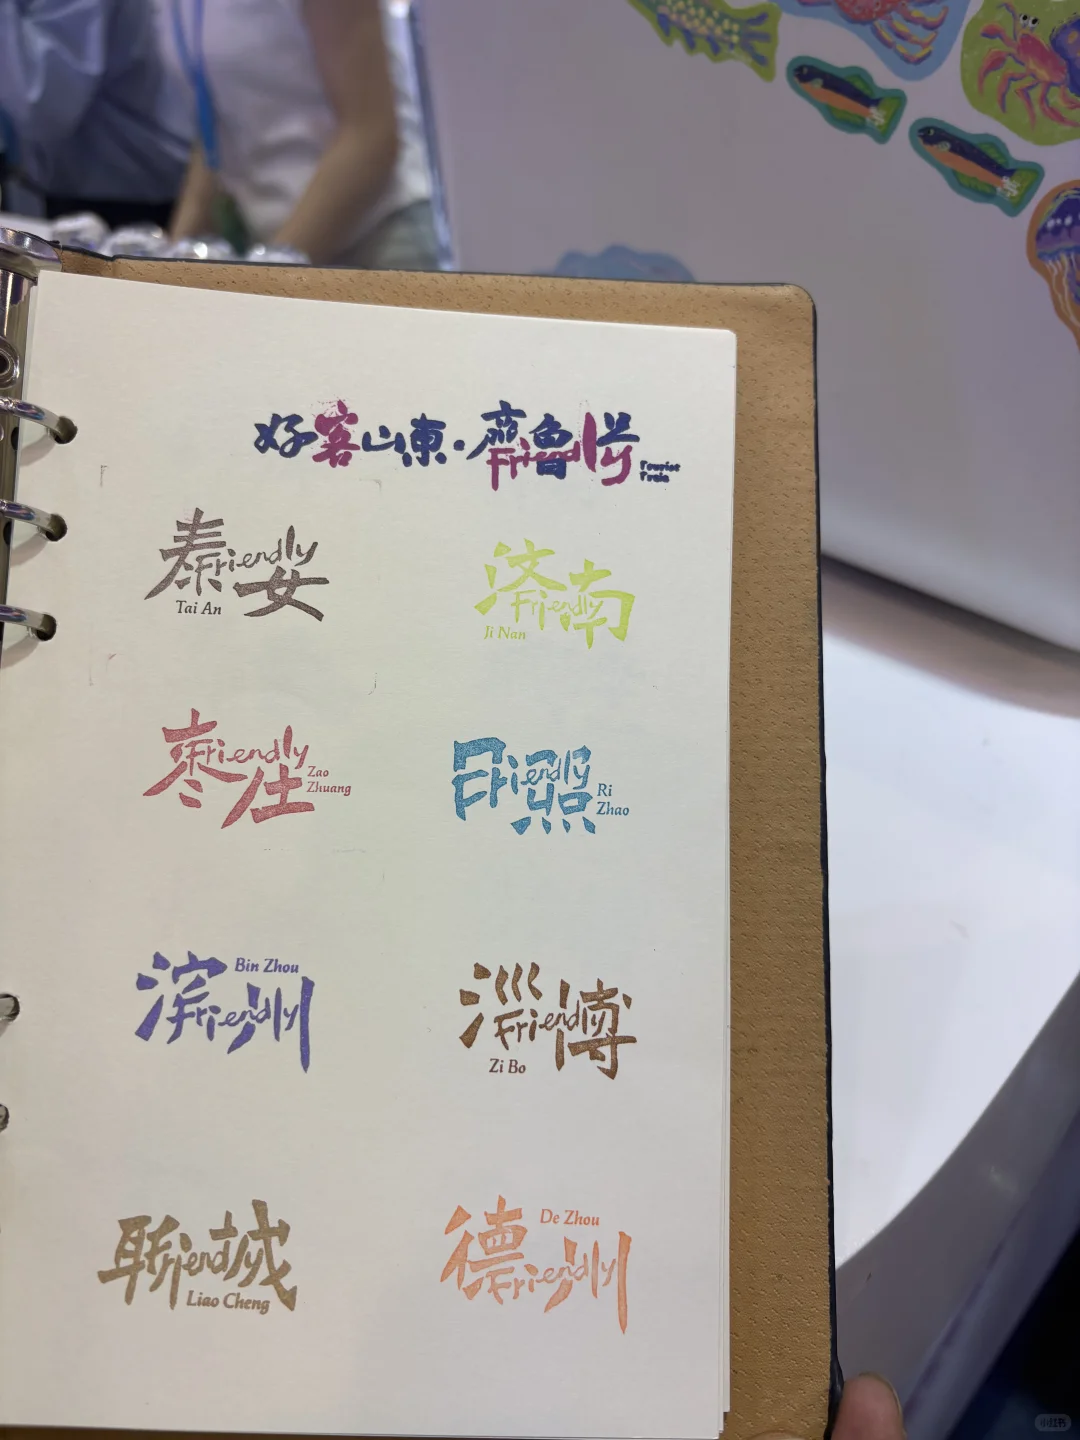 好客山東·齊魯Friendly号
Tourist
Train
泰安 Friendly
Tai An
济南 Friendly
Ji Nan
枣庄 Friendly
Zao
Zhuang
日照 Friendly
Ri
Zhao
滨州 Friendly
Bin Zhou
淄博 Friendly
Zi Bo
聊城 Friendly
Liao Cheng
德州 Friendly
De Zhou
小红书